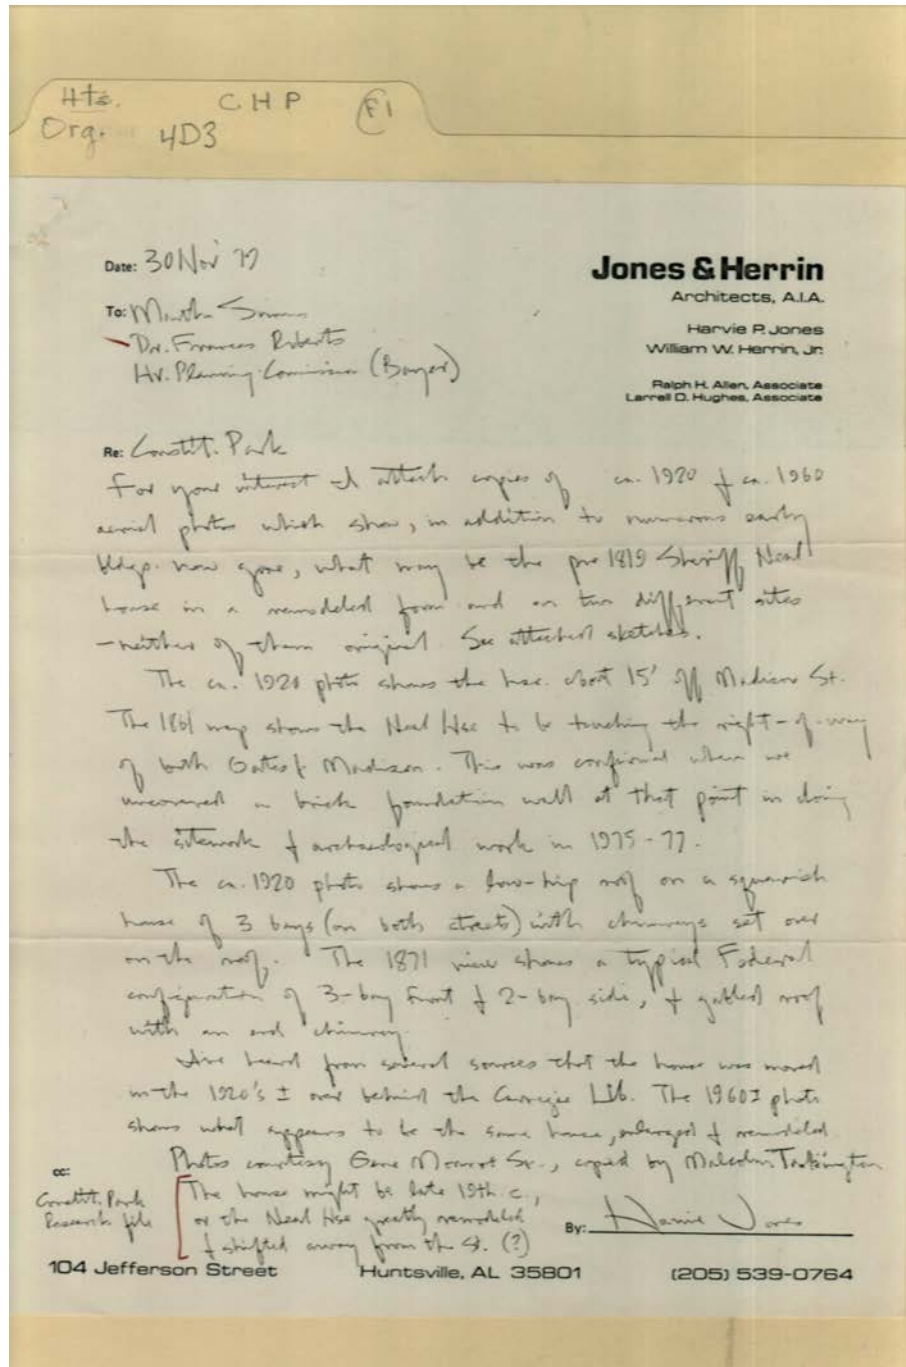 Hts. CHP F1
Org. 4D3
Date: 30 Nov 77
Jones & Herrin
Architects, A.I.A.
Harvie P. Jones
William W. Herrin, Jr.
Ralph H. Allen, Associate
Larrell D. Hughes, Associate
To: Martha Simms
Dr. Frances Roberts
Hv. Planning Comission
Re: Constit. Park
For your interest I attach copies of ca. 1920 & ca. 1960
aerial photos which show, in addition to numerous early
bldgs. now gone, what may be the pre 1819 Sheriff Neal
house in a remodeled form and on two different sites
- neither of them original. See attached sketches.
The ca. 1920 photo shows the hse. about 15' off Madison St.
The 1861 map shows the Neal Hse to be touching the right-of-way
of both Gates & Madison. This was confirmed when we
uncovered a brick foundation wall at that point in doing
the sitework & archaeological work in 1975-77.
The ca. 1920 photo shows a low-hip roof on a squarish
house of 3 bays (on both streets) with chimneys set over
on the roof. The 1871 view shows a typical Federal
configuration of 3-bay front & 2-bay side, & gabled roof
with an end chimney.
I've heard from several sources that the house was moved
in the 1920's ± over behind the Carnegie Lib. The 1960± photo
shows what appears to be the same house, enlarged & remodeled.
Photos courtesy Gene Monroe Sr., copied by Malcolm Tarkington
cc:
Constit. Park
Research file
The house might be late 19th. c.,
or the Neal Hse greatly remodeled
& shifted away from the St. (?)
By: Harvie Jones
104 Jefferson Street Huntsville, AL 35801 (205) 539-0764